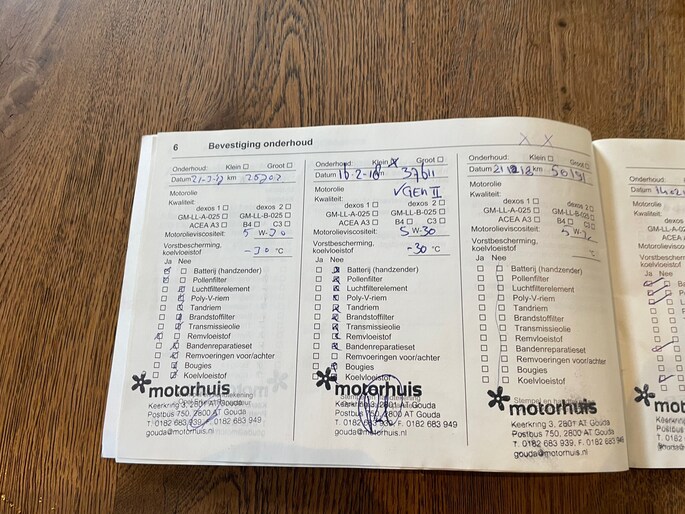 6 Bevestiging onderhoud
Onderhoud: Klein Groot
Datum km
Motorolie
Kwaliteit:
dexos 1 dexos 2
GM-LL-A-025 GM-LL-B-025
ACEA A3 B4 C3
Motorolieviscositeit: 5 W-30
Vorstbescherming,
koelvloeistof -30 °C
Ja Nee
Batterij (handzender)
Pollenfilter
Luchtfilterelement
Poly-V-riem
Tandriem
Brandstoffilter
Transmissieolie
Remvloeistof
Bandenreparatieset
Remvoeringen voor/achter
Bougies
Koelvloeistof
motorhuis
Keerkring 3, 2801 AT Gouda
Postbus 750, 2800 AT Gouda
T. 0182 683 939, F. 0182 683 949
gouda@motorhuis.nl
Onderhoud: Klein x Groot
Datum 16-2-18 km 37611
Motorolie VGEN II
Kwaliteit:
dexos 1 dexos 2
GM-LL-A-025 GM-LL-B-025
ACEA A3 B4 C3
Motorolieviscositeit: 5 W-30
Vorstbescherming,
koelvloeistof -30 °C
Ja Nee
Batterij (handzender)
Pollenfilter
Luchtfilterelement
Poly-V-riem
Tandriem
Brandstoffilter
Transmissieolie
Remvloeistof
Bandenreparatieset
Remvoeringen voor/achter
Bougies
Koelvloeistof
motorhuis
Keerkring 3, 2801 AT Gouda
Postbus 750, 2800 AT Gouda
T. 0182 683 939, F. 0182 683 949
gouda@motorhuis.nl
X X
Onderhoud: Klein Groot
Datum km 50191
Motorolie
Kwaliteit:
dexos 1 dexos 2
GM-LL-A-025 GM-LL-B-025
ACEA A3 B4 C3
Motorolieviscositeit: 5 W-30
Vorstbescherming,
koelvloeistof °C
Ja Nee
Batterij (handzender)
Pollenfilter
Luchtfilterelement
Poly-V-riem
Tandriem
Brandstoffilter
Transmissieolie
Remvloeistof
Bandenreparatieset
Remvoeringen voor/achter
Bougies
Koelvloeistof
Stempel en
motorhuis
Keerkring 3, 2801 AT Gouda
Postbus 750, 2800 AT Gouda
T. 0182 683 939, F. 0182 683 949
gouda@motorhuis.nl
Onderhoud:
Datum
Motorolie
Kwaliteit:
Ja Nee